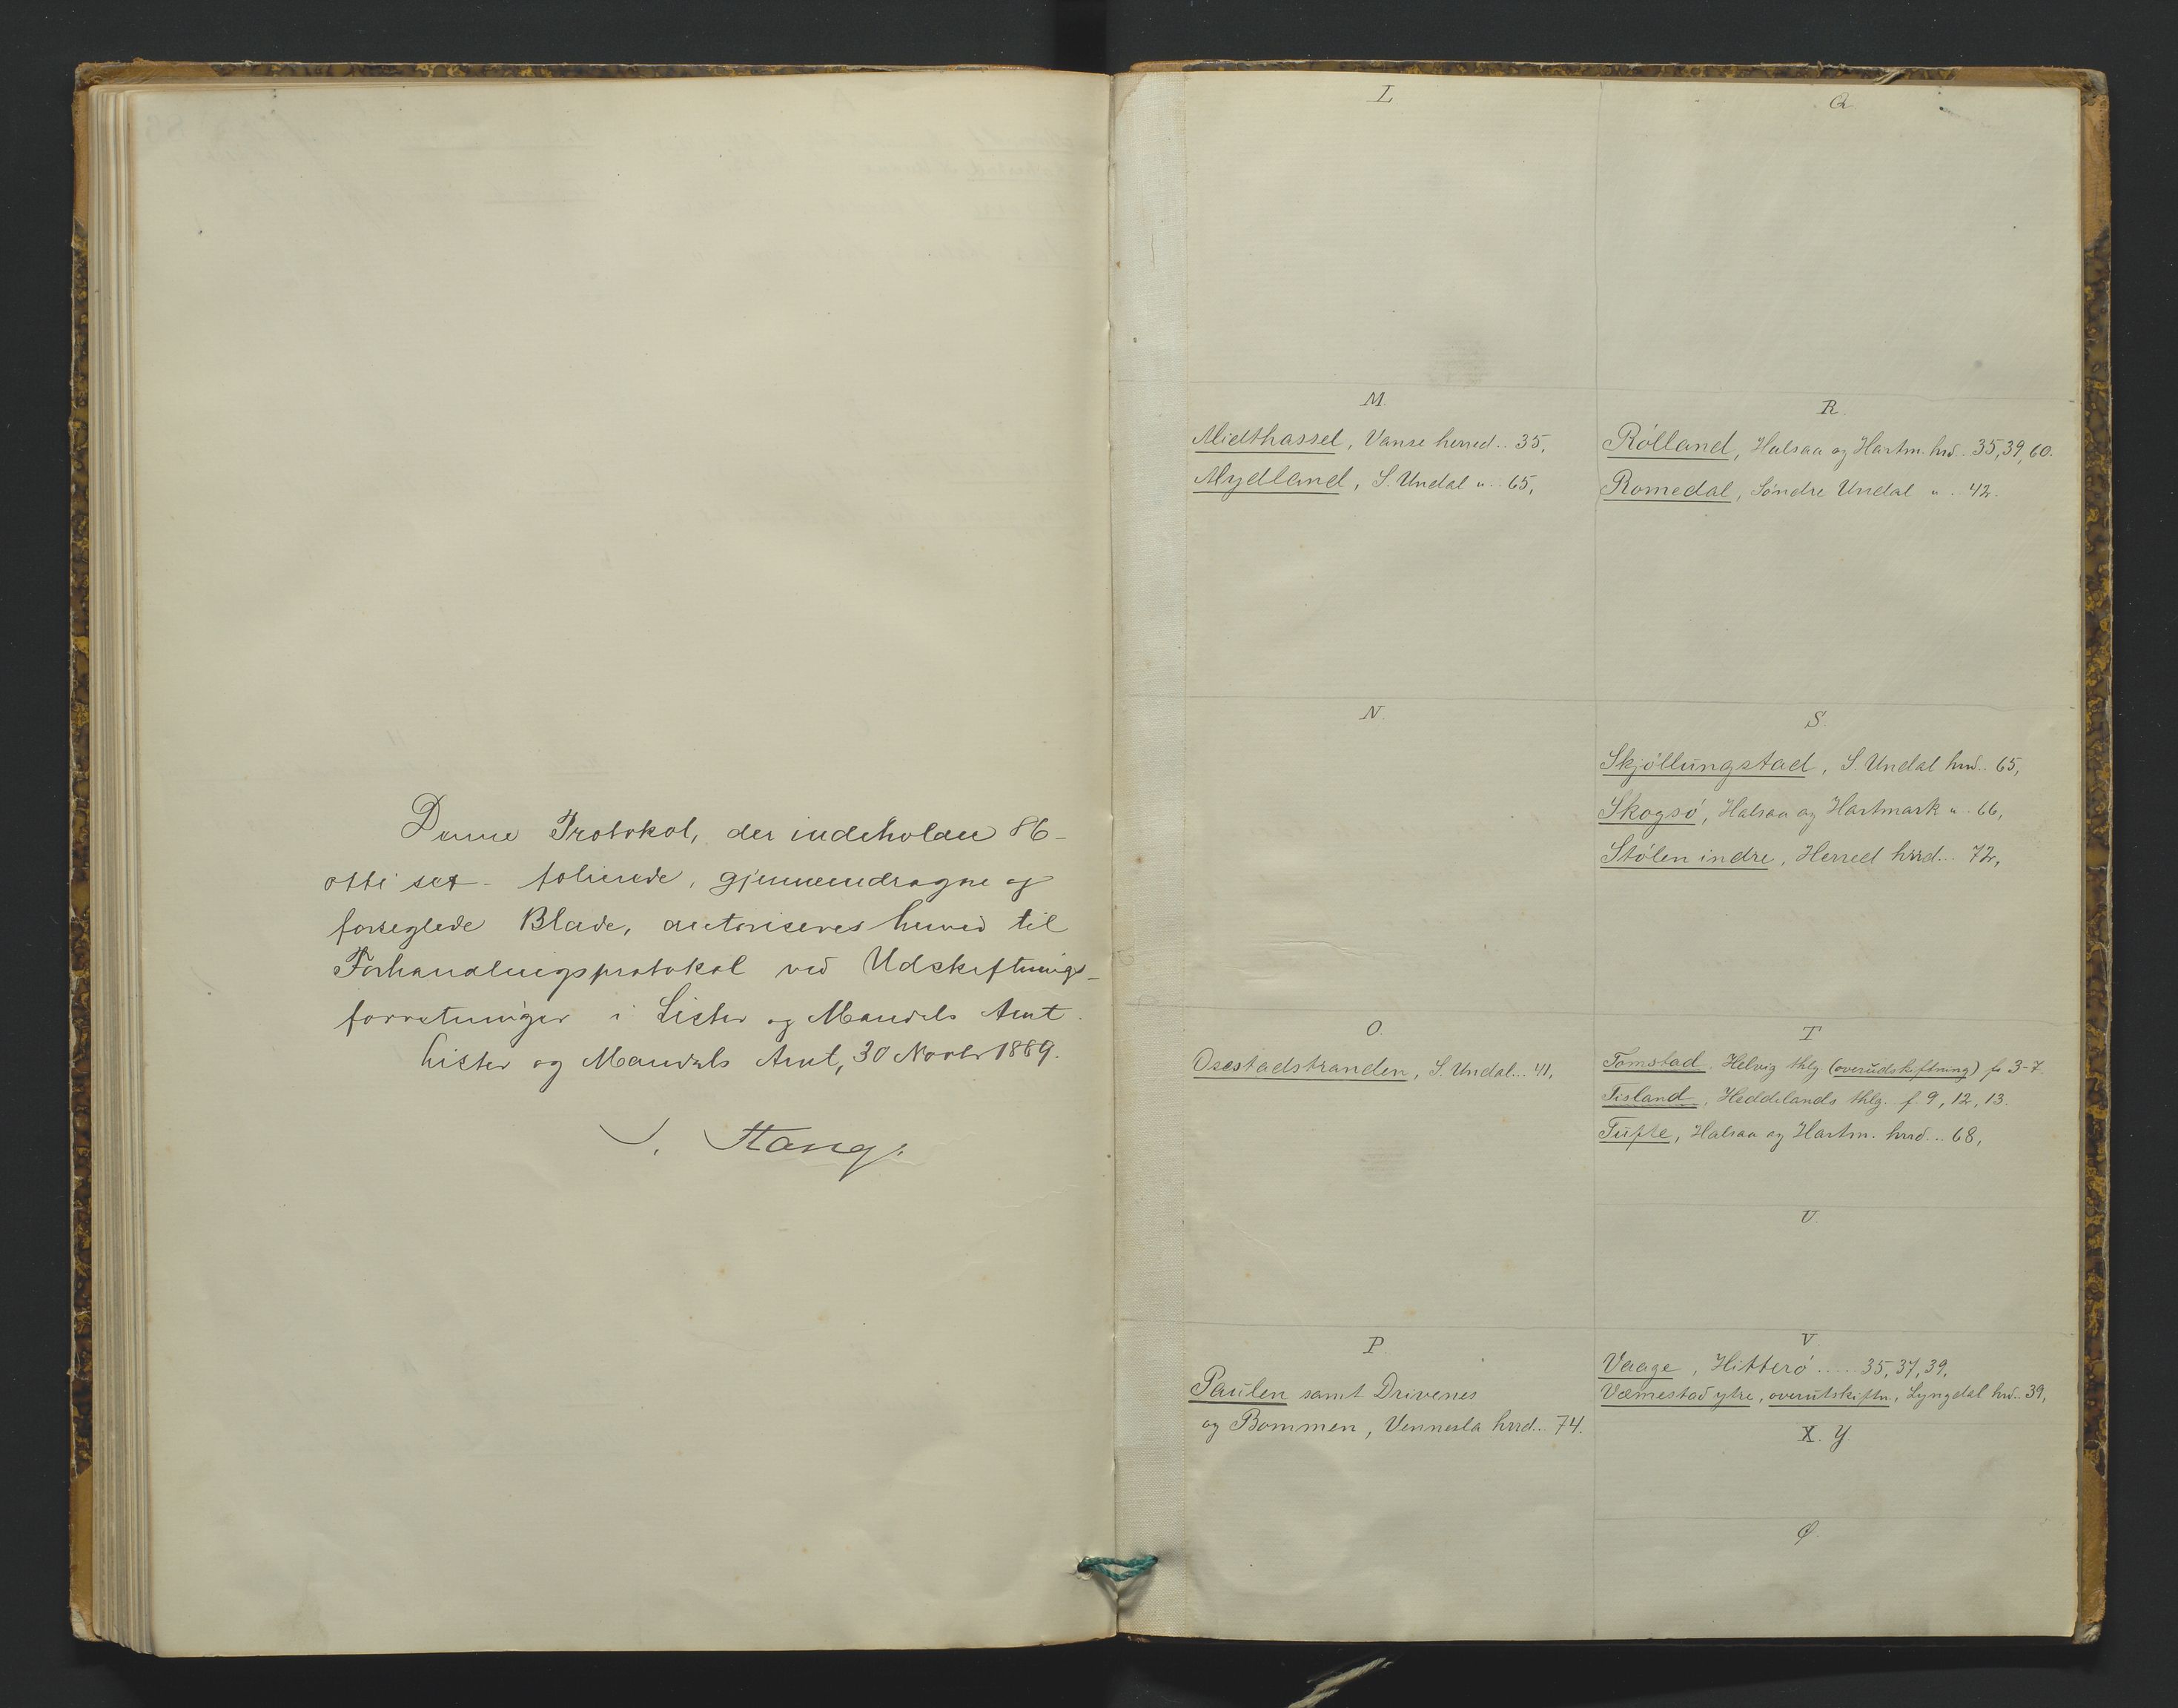 Denne Protokol, der indeholder 86-
otti sex - folierede, gjennemdragne og
forseglede Blade, autoriseres herved til
Forhandlingsprotokol ved Udskiftnings-
forretninger i Lister og Mandals Amt.
Lister og Mandals Amt, 30 Novbr 1889.
S. Stang.
L
M.
Midthassel, Vanse herred.. 35,
Mydland, S. Undal " .. 65,
N.
O.
Osestadstranden, S. Undal... 41,
P
Paulen samt Drivenes
og Bommen, Vennesla hrrd.. 74.
Q
R.
Rölland, Halsaa og Hartm. hrd.. 35, 39, 60.
Romedal, Söndre Undal " . 42.
S.
Skjöllungstad, S. Undal hrd.. 65,
Skogsö, Halsaa og Hartmark " . 66,
Stölen indre, Herred hrrd... 72,
T
Tomstad, Helvig thlg (overudskiftning) fo 3-7.
Tisland, Heddelands thlg. f. 9, 12, 13.
Tufte, Halsaa og Hartm. hrrd... 68,
U.
V
Vaage, Hitterö ..... 35, 37, 39,
Væmestad ytre, overutskiftn., Lyngdal hrd.. 39,
X. Y.
Ø.